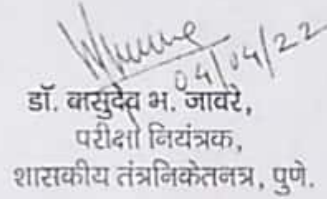 04/04/22
डॉ. वासुदेव भ. जावरे,
परीक्षा नियंत्रक,
शासकीय तंत्रनिकेतनत्र, पुणे.